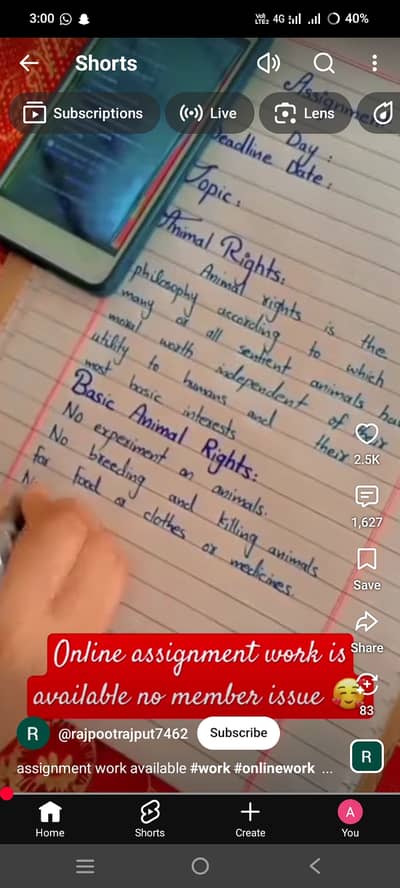 3:00
Vo)) LTE2 4G 40%
Shorts
Subscriptions
Live
Lens
Assignment
Day :
Deadline Date :
Topic :
Animal Rights :
Animal rights is the
philosophy according to which
many or all sentient animals have
moral worth independent of their
utility to humans and their
most basic interests
Basic Animal Rights :
No experiment on animals.
No breeding and killing animals
for food or clothes or medicines.
2.5K
1,627
Save
Share
83
Online assignment work is
available no member issue
R @rajpootrajput7462 Subscribe
R
assignment work available #work #onlinework ...
Home
Shorts
Create
A
You